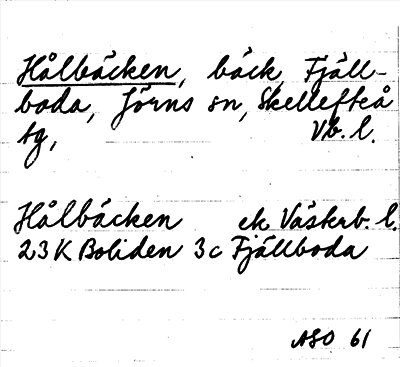 Hålbäcken, bäck, Fjäll-
boda, Jörns sn, Skellefteå
tg, Vb. l.
Hålbäcken ek Västerb. l.
23K Boliden 3c Fjällboda
ASO 61